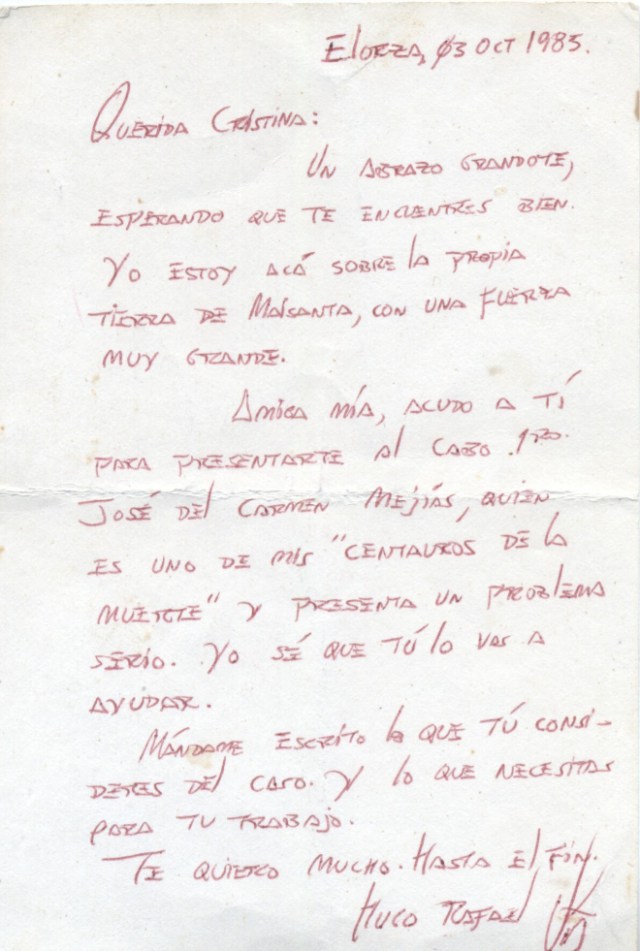 Elorza, 03 OCT 1985.
QUERIDA CRISTINA:
UN ABRAZO GRANDOTE,
ESPERANDO QUE TE ENCUENTRES BIEN.
YO ESTOY ACÁ SOBRE la PROPIA
TIERRA DE MAISANTA, CON UNA FUERZA
MUY GRANDE.
AMIGA MÍA, ACUDO A TÍ
PARA PRESENTARTE Al CABO .1RO.
JOSÉ DEl CARMEN MEJÍAS, QUIEN
ES UNO DE MIS "CENTAUROS DE la
MUERTE" Y PRESENTA UN PROBlEMA
SERIO. YO SÉ QUE TÚ lo VAS A
AYUDAR.
MÁNDAME ESCRITO lo QUE TÚ CONSI-
DERES DEl CASO. Y lo QUE NECESITAS
PARA TU TRABAJO.
TE QUIERO MUCHO. HASTA El FIN.
HUGO RAFAEl